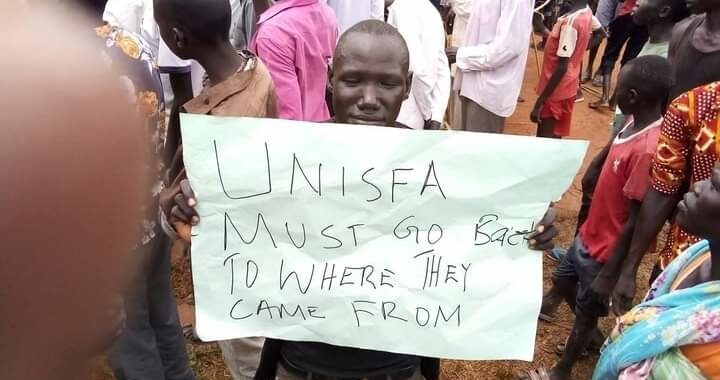 UNISFA
MUST GO Back
TO WHERE THEY
CAME FROM